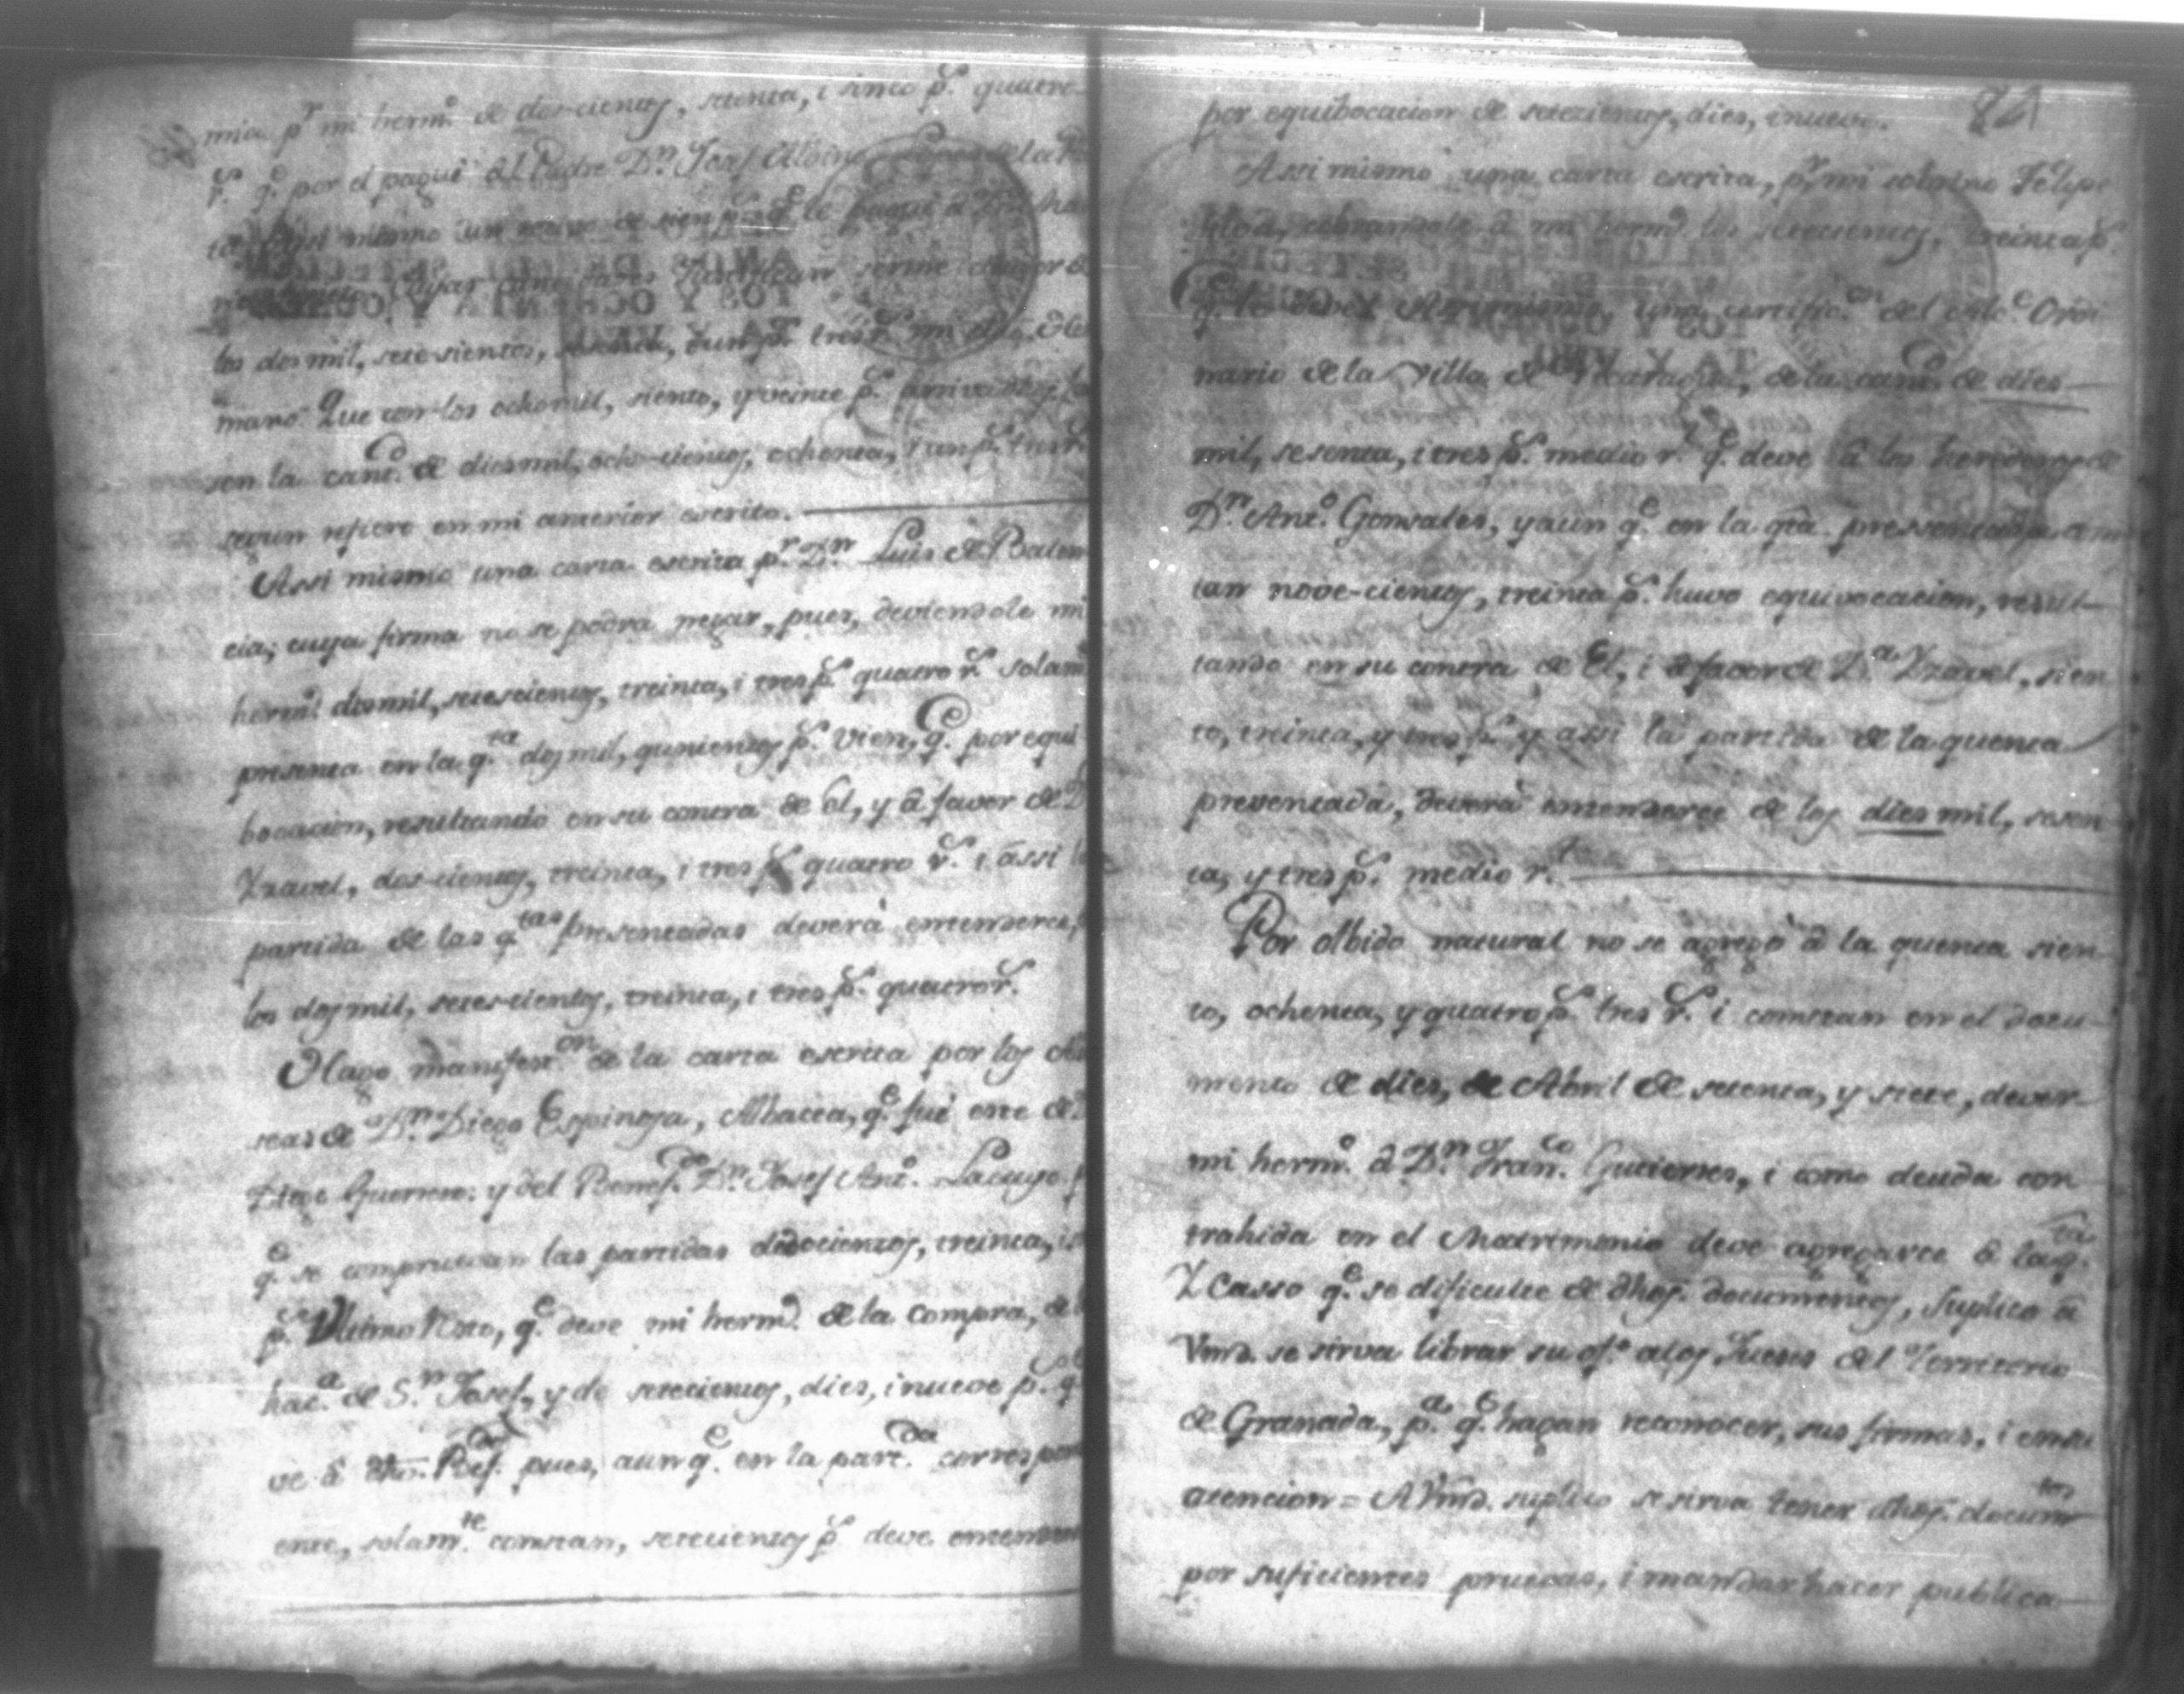 mia pr mi hermo de dos-cientos, setenta, i sinco ps quatro
rs qe por el pagué al Padre Dn Josef Albino
mismo un de sien ps qe le pagué a
los dos mil, sete-sientos, ps tres rs mi
mano. Que con los ochomil, siento, y veinte ps arriva
son la cantd de diesmil, ocho-cientos, ochenta, i un ps tres rs
segun refiere en mi anterior escrito.
Assi mismo una carta escrita pr Dn Luis de Palen
cia; cuya firma no se podra negar, pues, deviendole mi
hermo dosmil, setescientos, treinta, i tres ps quatro rs solamte
presenta en la qta dos mil, quinientos ps. Vien, qe por equi
bocacion, resultando en su contra de El, y â favor de Da
Yzavel, dos-cientos, treinta, i tres ps quatro rs i assi la
partida de las qtas presentadas deverà entenderce,
los dos mil, setescientos, treinta, i tres ps quatro rs.
Hago manifeston de la carta escrita por los Alba
seas de Dn Diego Espinosa, Albacea, qe fué este de Dn
Diego Guerrero: y del Benefdo Dn Josef Anto Lacayo
qe se comprueban las partidas de docientos, treinta, i
ps Ultimo Resto, qe deve mi hermo de la compra, de la
haca de Sn Josef, y de setecientos, dies, i nueve ps qe
ve â dho. Benefdo pues, aunqe en la partda correspondi
ente, solamte constan, setecientos ps deve entenderse
821
por equibocacion de setezientos, dies, i nueve.
Assi mismo una carta escrita, pr mi sobrino Felipe
cobrandole â mi hermo los setecientos, treinta ps
qe le deve. Assimismo, una certificon del Alce Ordi
nario de la Villa de Nicaragua, de la cantd de dies
mil, sesenta, i tres ps medio rl qe deve â los herederos de
Dn Anto Gonsales, y aun qe en la qta pressentada
tan nove-cientos, treinta ps huvo equivocacion, resul-
tando en su contra de El, i â favor de Da Yzavel, sien
to, treinta, y tres ps y assi la partida de la quenta
preventada, deverà entenderce de los dies mil, sesen
ta, y tres ps medio rl
Por olbido natural no se agregò â la quenta sien
to, ochenta, y quatro ps tres rs i constan en el docu-
mento de dies, de Abril de setenta, y siete, dever
mi hermo â Dn Franco Gutierres, i como deuda con
trahida en el Matrimonio deve agregarce â la qta
Y Casso qe se dificulte de dhos. documentos, Suplico â
Vmd. se sirva librar su ofo a los Jueses del Territorio
de Granada, pa qe hagan reconocer, sus firmas, i en su
atencion = A Vmd. suplico se sirva tener dhos. documtos
por suficientes pruevas, i mandar hacer publica